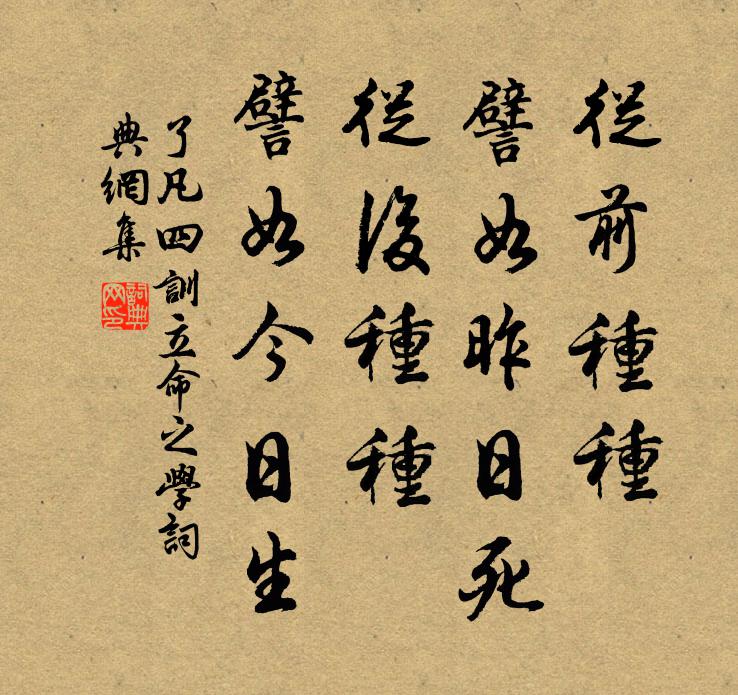 從前種種
譬如昨日死
從後種種
譬如今日生
了凡四訓立命之學詞
典網集
詞典
网印